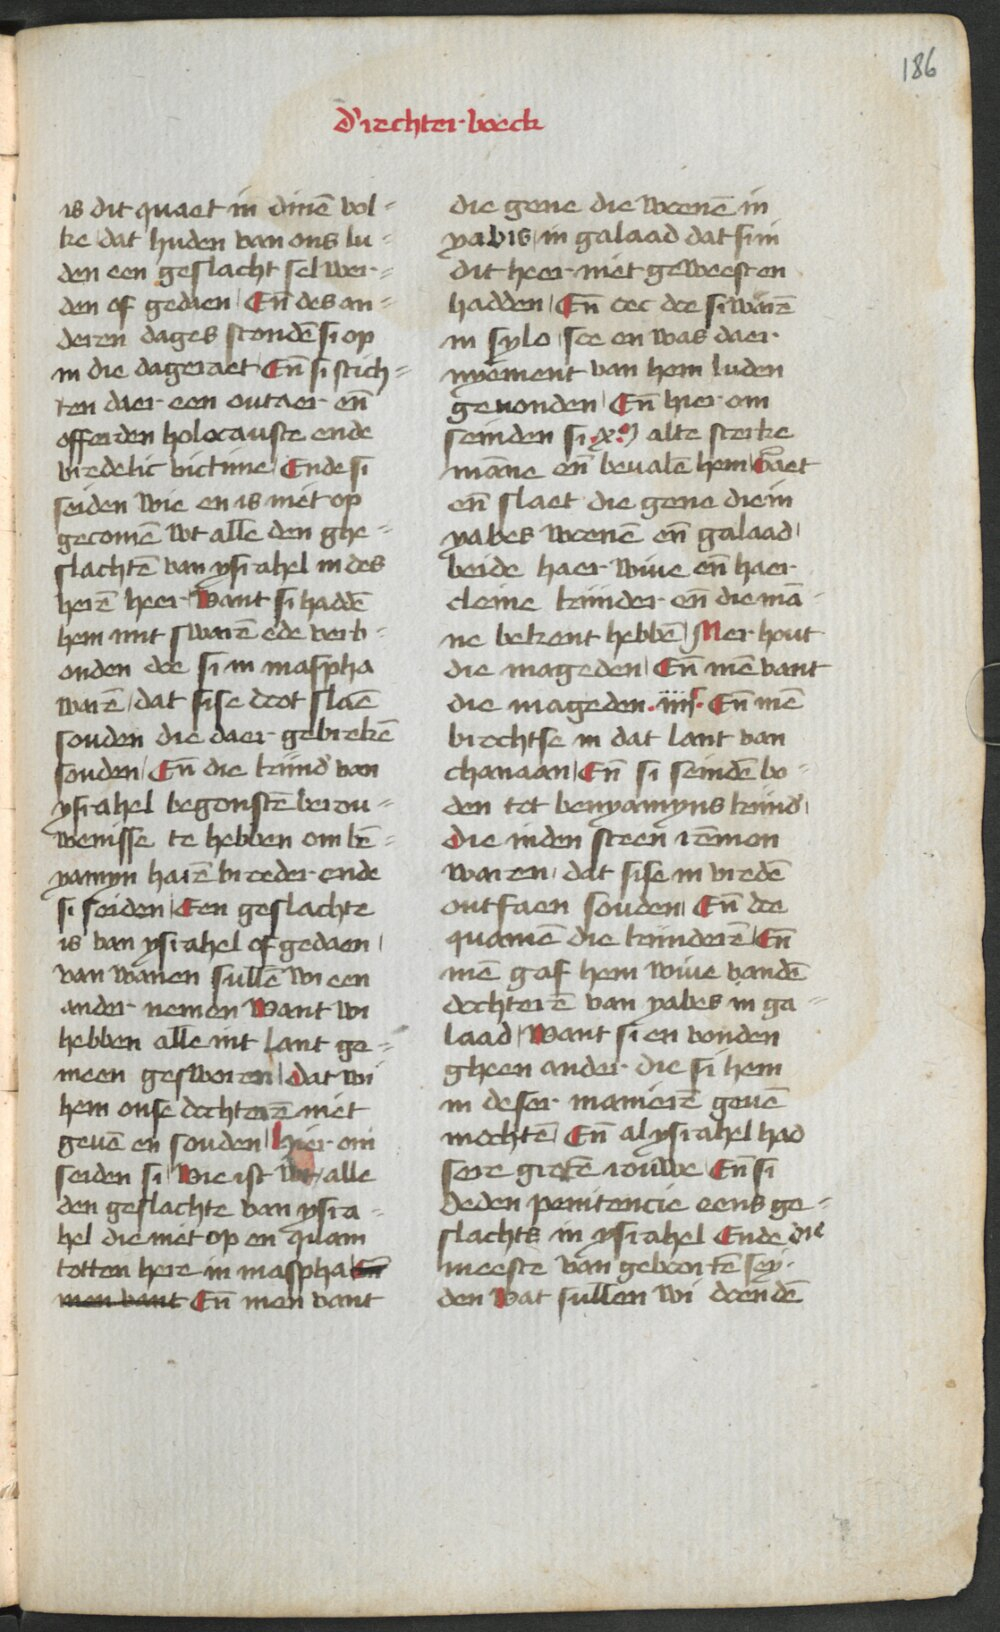 186
d'rechter boeck
is dit quaet in dinē vol-
ke dat huden van ons lu-
den een geslacht sel wer-
den of gedaen En̄ des an-
deren dages stondē si op
in die dageraet En̄ si stich-
ten daer een outaer en̄
offerden holocauste ende
vredelic victime Ende si
seiden wie en is niet op
gecomē wt alle den ghe-
slachtē van ysrahel in des
herē heer Want si haddē
hem mit swarē ede verb-
onden doe si in maspha
warē dat sise doot slaē
souden die daer gebrekē
souden En̄ die kind' van
ysrahel begonstē berou-
wenisse te hebben om bē-
yamyn harē broeder ende
si seiden Een geslachte
is van ysrahel of gedaen
van wanen sullē wi een
ander nemen Want wi
hebben alle int lant ge-
meen gesworen dat wi
hem onse dochterē niet
geuē en souden Hier om
seiden si Wie ist wt alle
den geslachte van ysra-
hel die niet op en quam
totten here in maspha En̄
men vant En̄ men vant
die gene die woenē in
yabis in galaad dat si in
dit heer niet geweest en
hadden En̄ oec doe si warē
in sylo soe en was daer
nyement van hem luden
geuonden En̄ hier om
seinden si .x.m alte sterke
manne en̄ beualē hem Gaet
en̄ slaet die gene die in
yabes woenē en̄ galaad
beide haer wiue en̄ haer
cleine kinder en̄ die mā-
ne bekent hebbē Mer hout
die mageden En̄ mē vant
die mageden .iiijc. En̄ mē
brochtse in dat lant van
chanaan En̄ si seindē bo-
den tot benyamyns kind'
die inden steen remon
waren dat sise in vredē
ontfaen souden En̄ doe
quamē die kinderē En̄
mē gaf hem wiue vandē
dochterē van yabes in ga-
laad Want si en vonden
gheen ander die si hem
in deser manierē geuē
mochtē En̄ al ysrahel had
sere grotē rouwe En̄ si
deden penitencie eens ge-
slachts in ysrahel Ende die
meeste van geboortē sey-
den Wat sullen wi doen dē